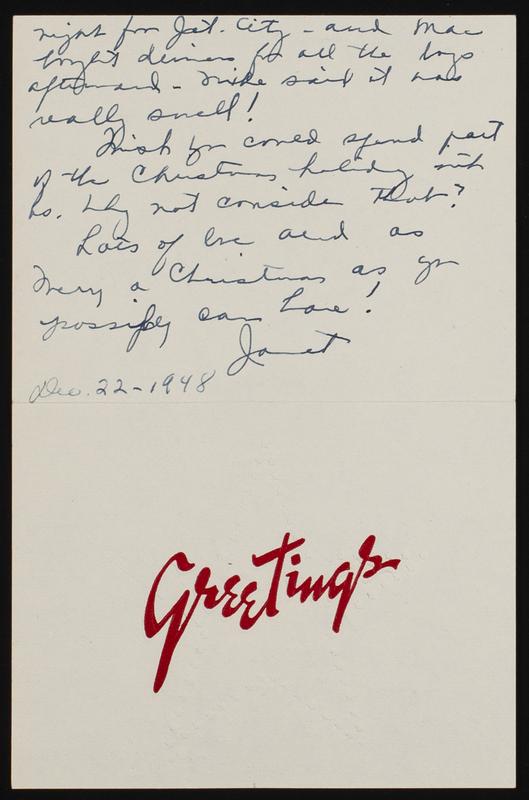 night for Jat. City - and Mac
bought dinners for all the boys
afterward - Mike said it was
really swell!
Wish you could spend part
of the Christmas holiday with
us. Why not consider that?
Lots of love and as
Merry a Christmas as you
possibly can have!
Janet
Dec. 22-1948
Greetings